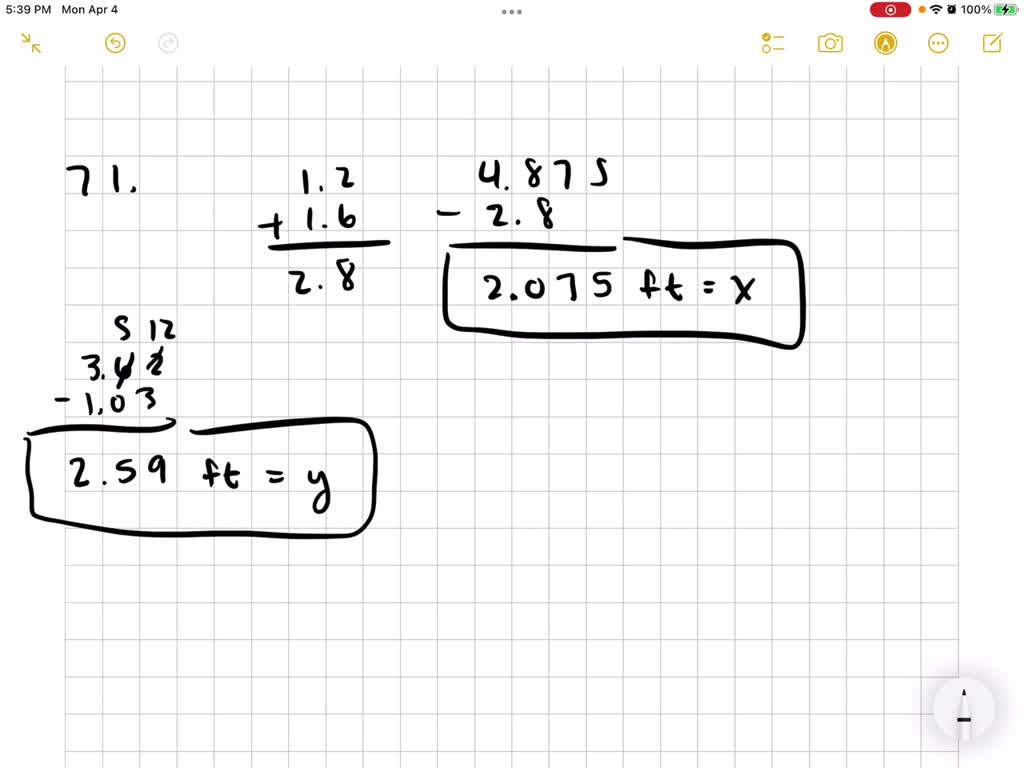 5:39 PM Mon Apr 4
100%
71.
1.2
+ 1.6
2.8
4.875
- 2.8
2.075 ft = x
5 12
3.62
- 1.03
2.59 ft = y